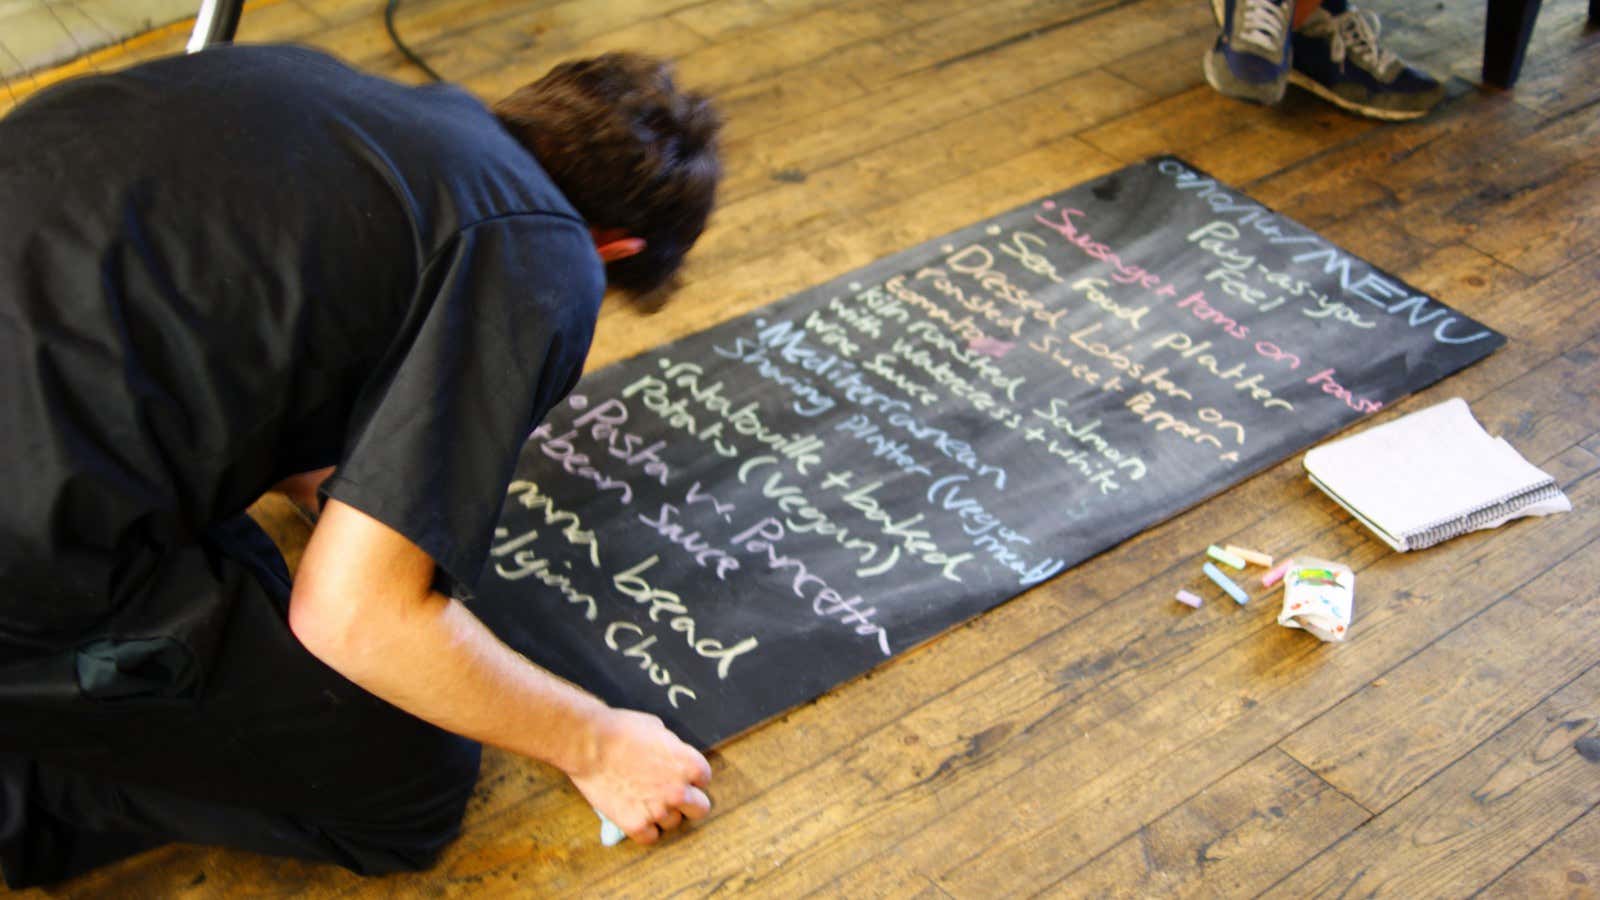 07/10/16/MENU
Pay-as-you
Feel
• Sausage + toms on toast
• Sea Food Platter
• Dressed Lobster on
roasted sweet Pepper +
tomato
• Kiln roasted Salmon
with watercress + white
wine sauce
• Mediterranean
Sharing Platter
• ratatouille + baked
Potato (Vegan)
• Pasta w. Pancetta
+ bean Sauce
bread
Choc